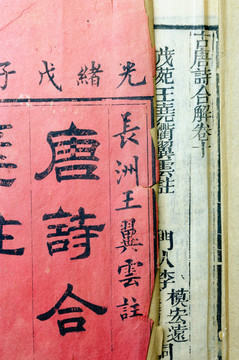 古唐詩合解卷十
茂苑王堯衢翼雲註
門人李模宏遠同
光緒戊子
長洲王翼雲註
唐詩合
註